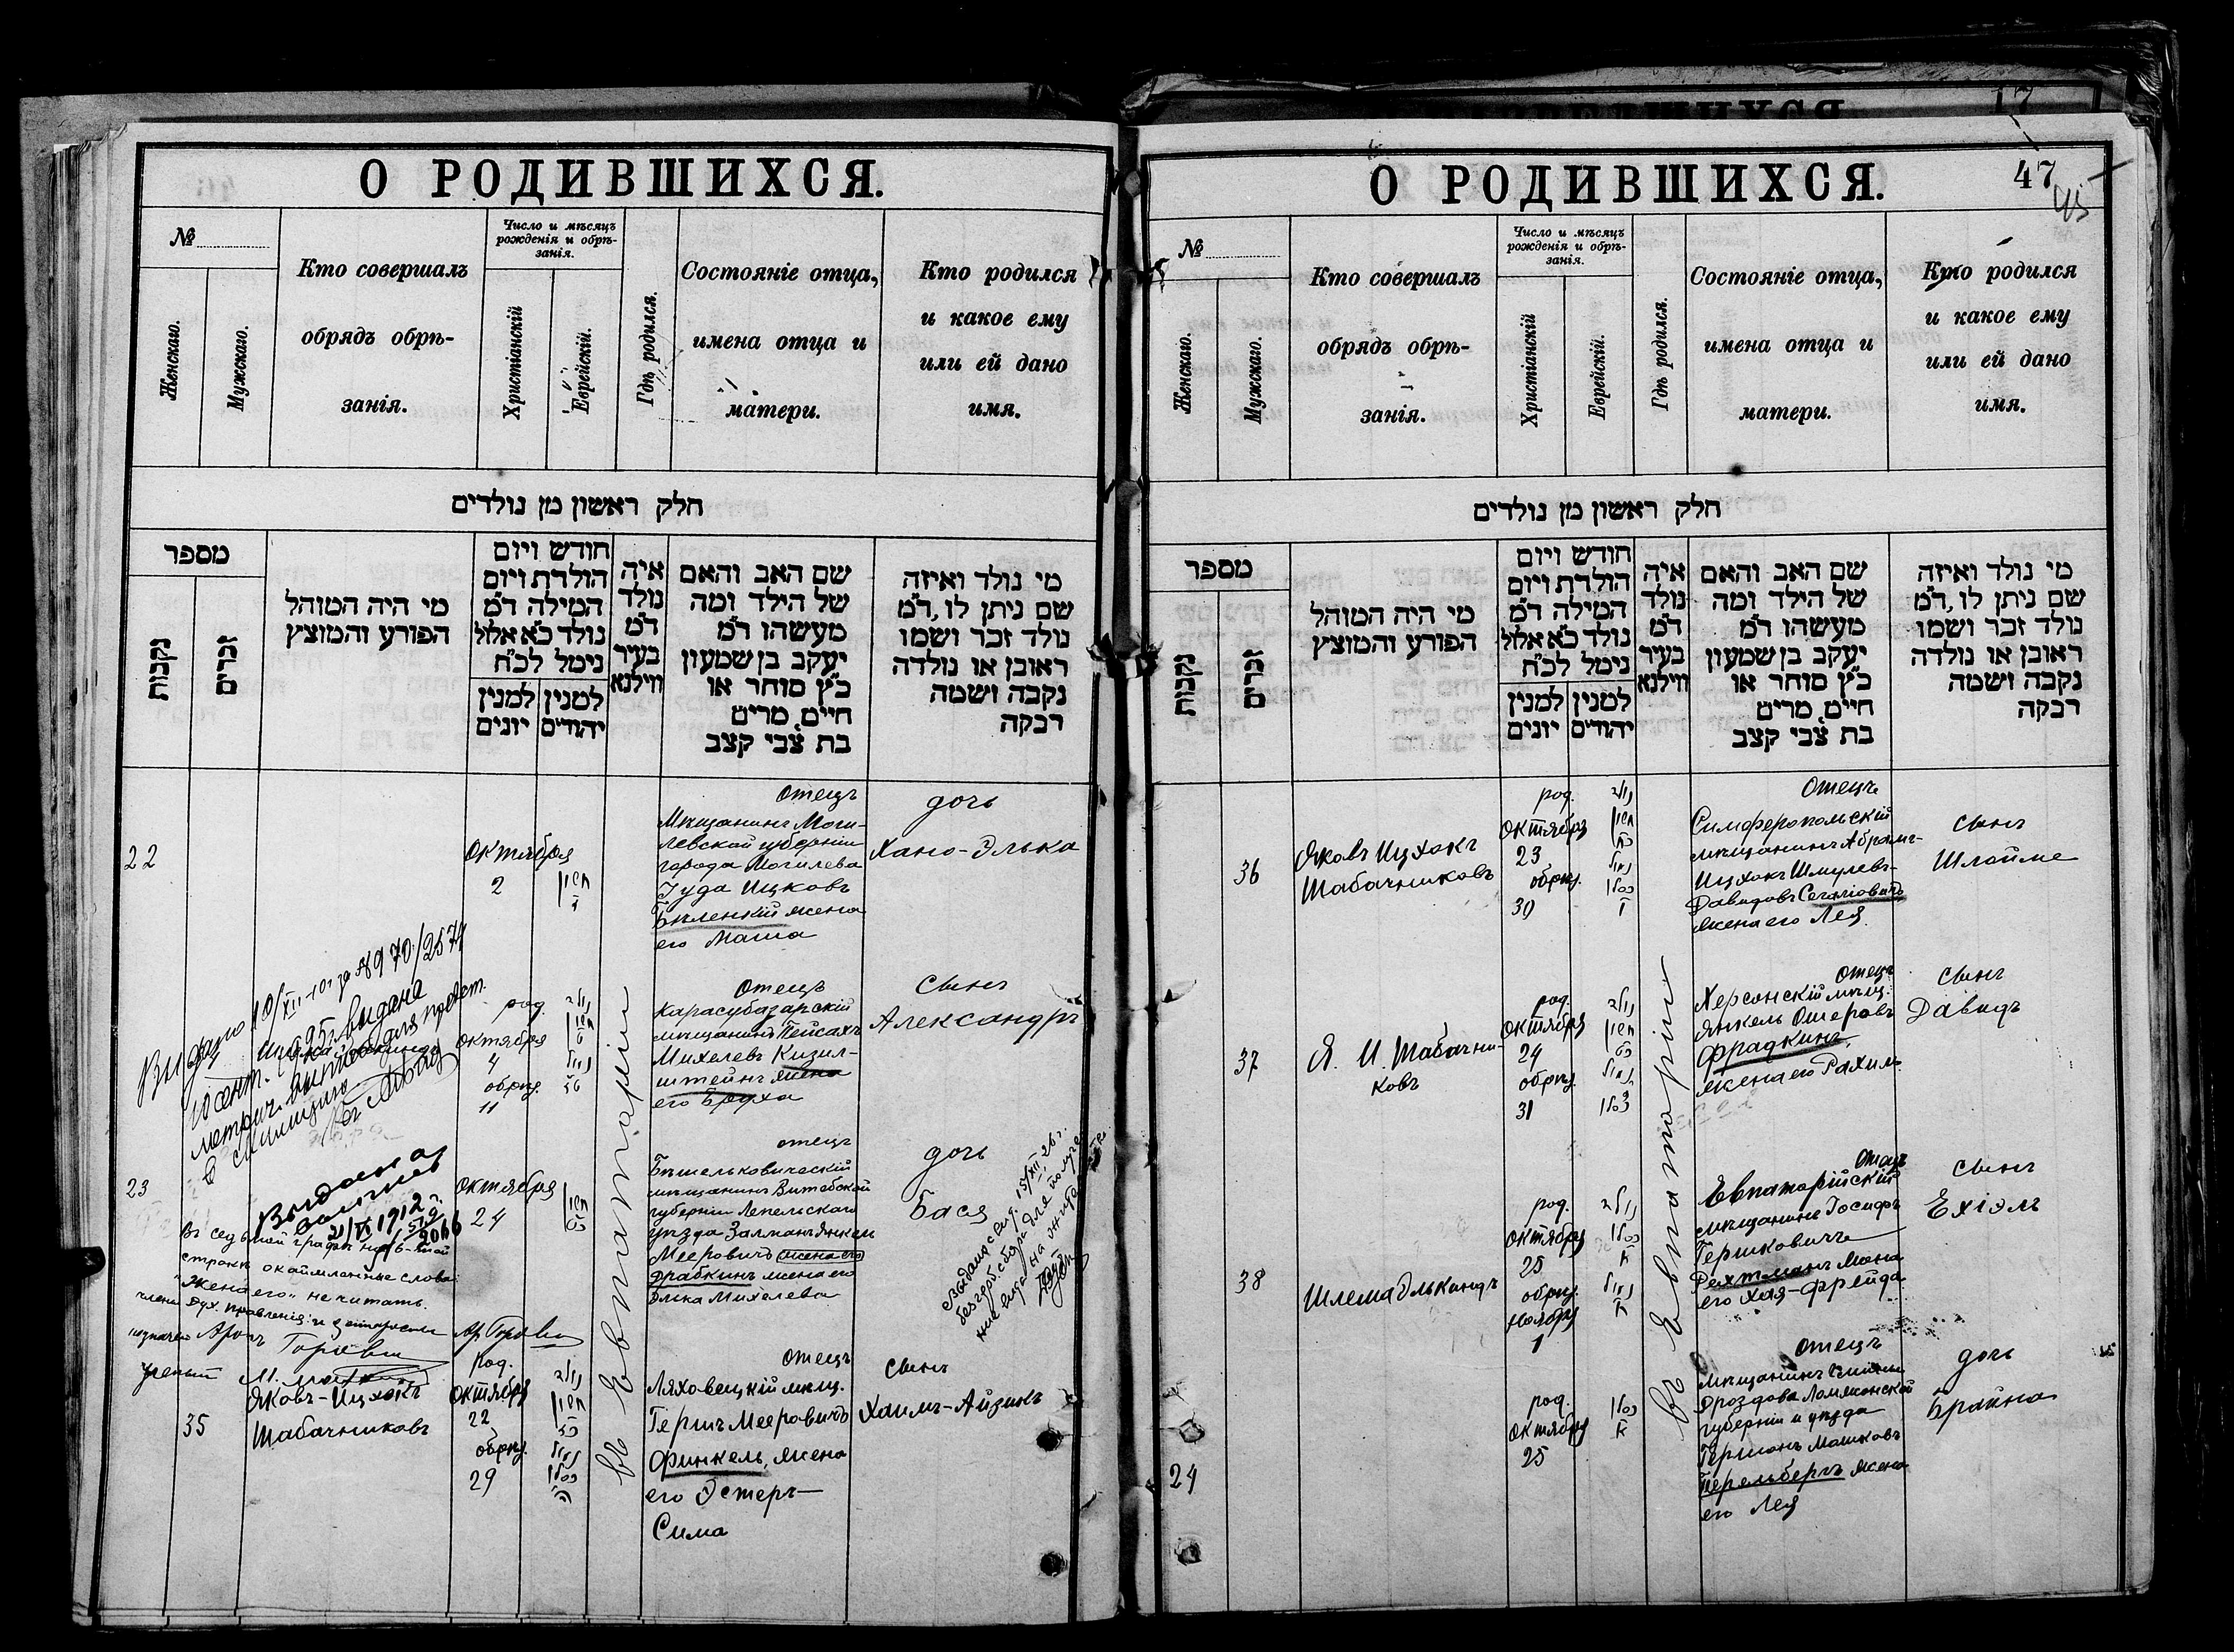 О РОДИВШИХСЯ.
№
Женскаго.
Мужскаго.
Кто совершалъ
обрядъ обрѣ-
занія.
Число и мѣсяцъ
рожденія и обрѣ-
занія.
Христіанскій
Еврейскій.
Гдѣ родился.
Состояніе отца,
имена отца и
матери.
Кто родился
и какое ему
или ей дано
имя.
חלק ראשון מן נולדים
מספר
נקבות
זכרים
מי היה המוהל
הפורע והמוצץ
חודש ויום
הולדת ויום
המילה ד״מ
נולד כ״א אלול
נימל לכ״ח
למנין
יונים
למנין
יהודים
איה
נולד
ד״מ
בעיר
ווילנא
שם האב והאם
של הילד ומה
מעשהו ד״מ
יעקב בן שמעון
כ״ץ סוחר או
חיים, מרים
בת צבי קצב
מי נולד ואיזה
שם ניתן לו, ד״מ
נולד זכר ושמו
ראובן או נולדה
נקבה ושמה
רבקה
22
Октября
2
חשון
ד
въ Евпаторіи
отецъ
Мѣщанинъ Моги-
левской губерніи
города Могилева
Іуда Ицковъ
Бѣленкій жена
его Маша
дочь
Хано-Элька
Выдано 10/XII-101
род.
Октября
4
обрѣз.
11
נולד
חשון
ו
נמול
отецъ
Карасубазарскій
мѣщанинъ Пейсахъ
Михелевъ Кизил-
штейнъ жена
его Броха
сынъ
Александръ
23
Выдана
21/VI 1912 г.
Въ седьмой графѣ на 6-мой
строкѣ окаймленные слова
"жена его" не читать.
члены дух. правленія: и
Аронъ Горовиц
ученый М.
Октября
24
חשון
כט
отецъ
Бѣшельковическій
мѣщанинъ Витебской
губерніи Лепельскаго
уѣзда Залманъ Янкель
Мееровичъ жена его
Драбкинъ жена его
Элка Михелева
дочь
Бася
Выдана с вид. 15/XII 26 г.
без гербов. сбора для получе-
ние вида на жит
35
Яковъ-Ицхокъ
Шабачниковъ
род.
Октября
22
обрѣз.
29
נולד
חשון
כז
נמול
כסלו
ה
отецъ
Ляховецкій мѣщ.
Гершъ Мееровичъ
Финкель, жена
его Эстеръ-
Сима
сынъ
Хаимъ-Айзикъ
О РОДИВШИХСЯ.
47
45
№
Женскаго.
Мужскаго.
Кто совершалъ
обрядъ обрѣ-
занія.
Число и мѣсяцъ
рожденія и обрѣ-
занія.
Христіанскій
Еврейскій.
Гдѣ родился.
Состояніе отца,
имена отца и
матери.
Кто родился
и какое ему
или ей дано
имя.
חלק ראשון מן נולדים
מספר
נקבות
זכרים
מי היה המוהל
הפורע והמוצץ
חודש ויום
הולדת ויום
המילה ד״מ
נולד כ״א אלול
נימל לכ״ח
למנין
יונים
למנין
יהודים
איה
נולד
ד״מ
בעיר
ווילנא
שם האב והאם
של הילד ומה
מעשהו ד״מ
יעקב בן שמעון
כ״ץ סוחר או
חיים, מרים
בת צבי קצב
מי נולד ואיזה
שם ניתן לו, ד״מ
נולד זכר ושמו
ראובן או נולדה
נקבה ושמה
רבקה
36
Яковъ Ицхокъ
Шабачниковъ
род.
Октября
23
обрѣз.
30
נולד
חשון
כח
נמול
כסלו
ו
въ Евпаторіи
отецъ
Симферопольскій
мѣщанинъ Абрамъ-
Ицхокъ Шмулевъ-
Давидовъ Сегаловичъ
жена его Лея.
сынъ
Шлойме
37
Я. И. Шабачни-
ковъ
род.
Октября
24
обрѣз.
31
נולד
חשון
כט
נמול
כסלו
отецъ
Херсонскій мѣщ.
Янкель Ошеровъ
Фрадкинъ,
жена его Рахиль
сынъ
Давидъ
38
Шлема Элькиндъ
род.
Октября
25
обрѣз.
Ноября
1
נולד
כסלו
א
נמול
отецъ
Евпаторійскій
мѣщанинъ Іосифъ
Гершковичъ
Рехтманъ жена
его Хая-Фрейда
сынъ
Ехіэль
24
род.
Октября
25
כסלו
א
отецъ
Мѣщанинъ
Дроздова Ломжинской
губерніи и уѣзда
Гершонъ Машковъ
Перельбергъ жена
его Лея
дочь
Брайна